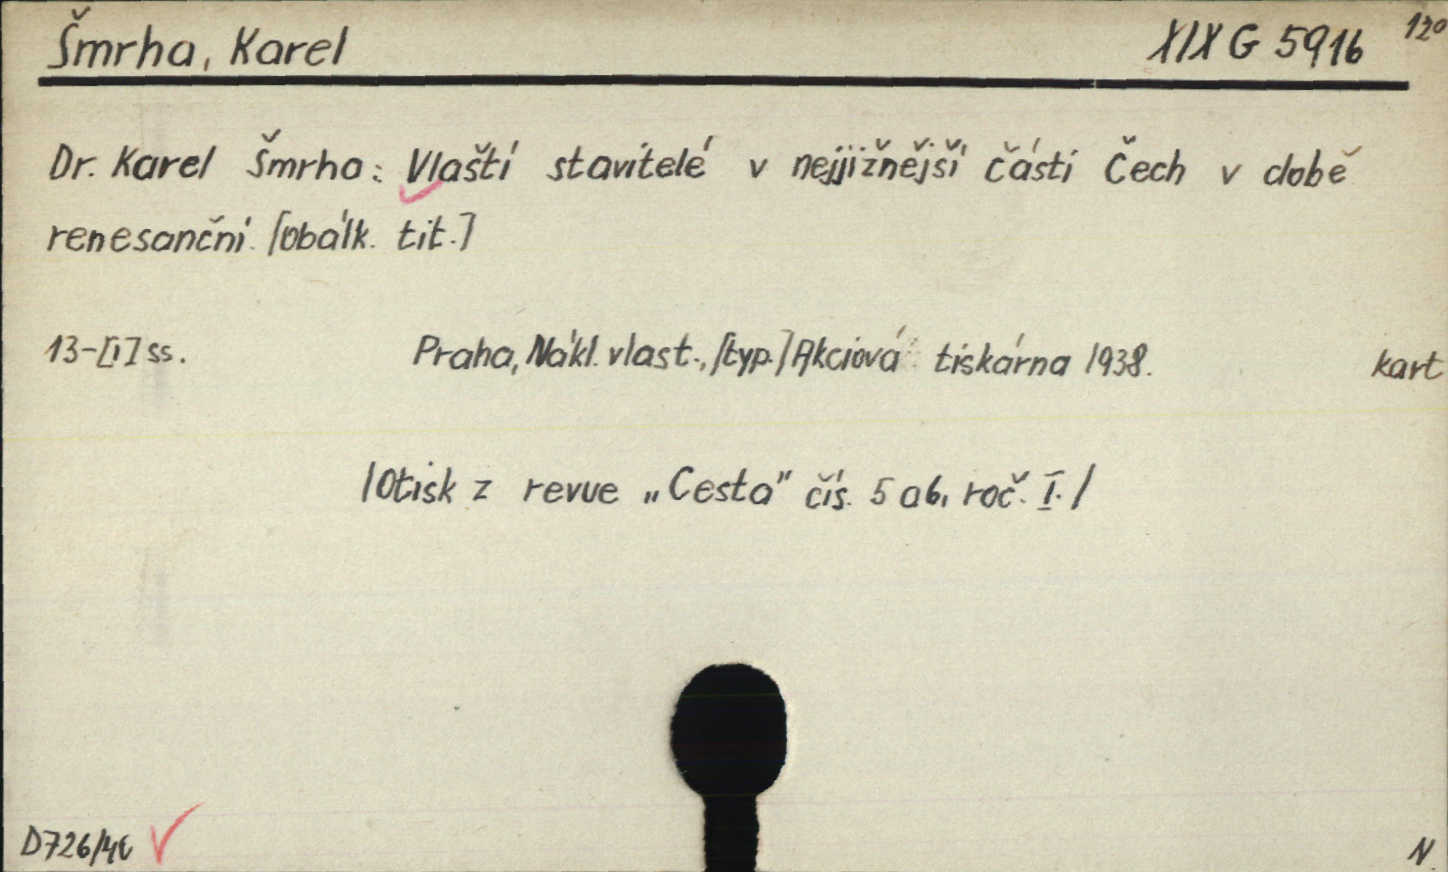 Šmrha, Karel XIX G 5916 12°
Dr. Karel Šmrha: Vlaští stavitelé v nejjižnější části Čech v době
renesanční. [obálk. tit.]
13-[1] ss. Praha, Nákl. vlast., [typ.] Akciová tiskárna 1938. kart
/Otisk z revue „Cesta" čís. 5 a 6, roč. I./
D726/40 N.